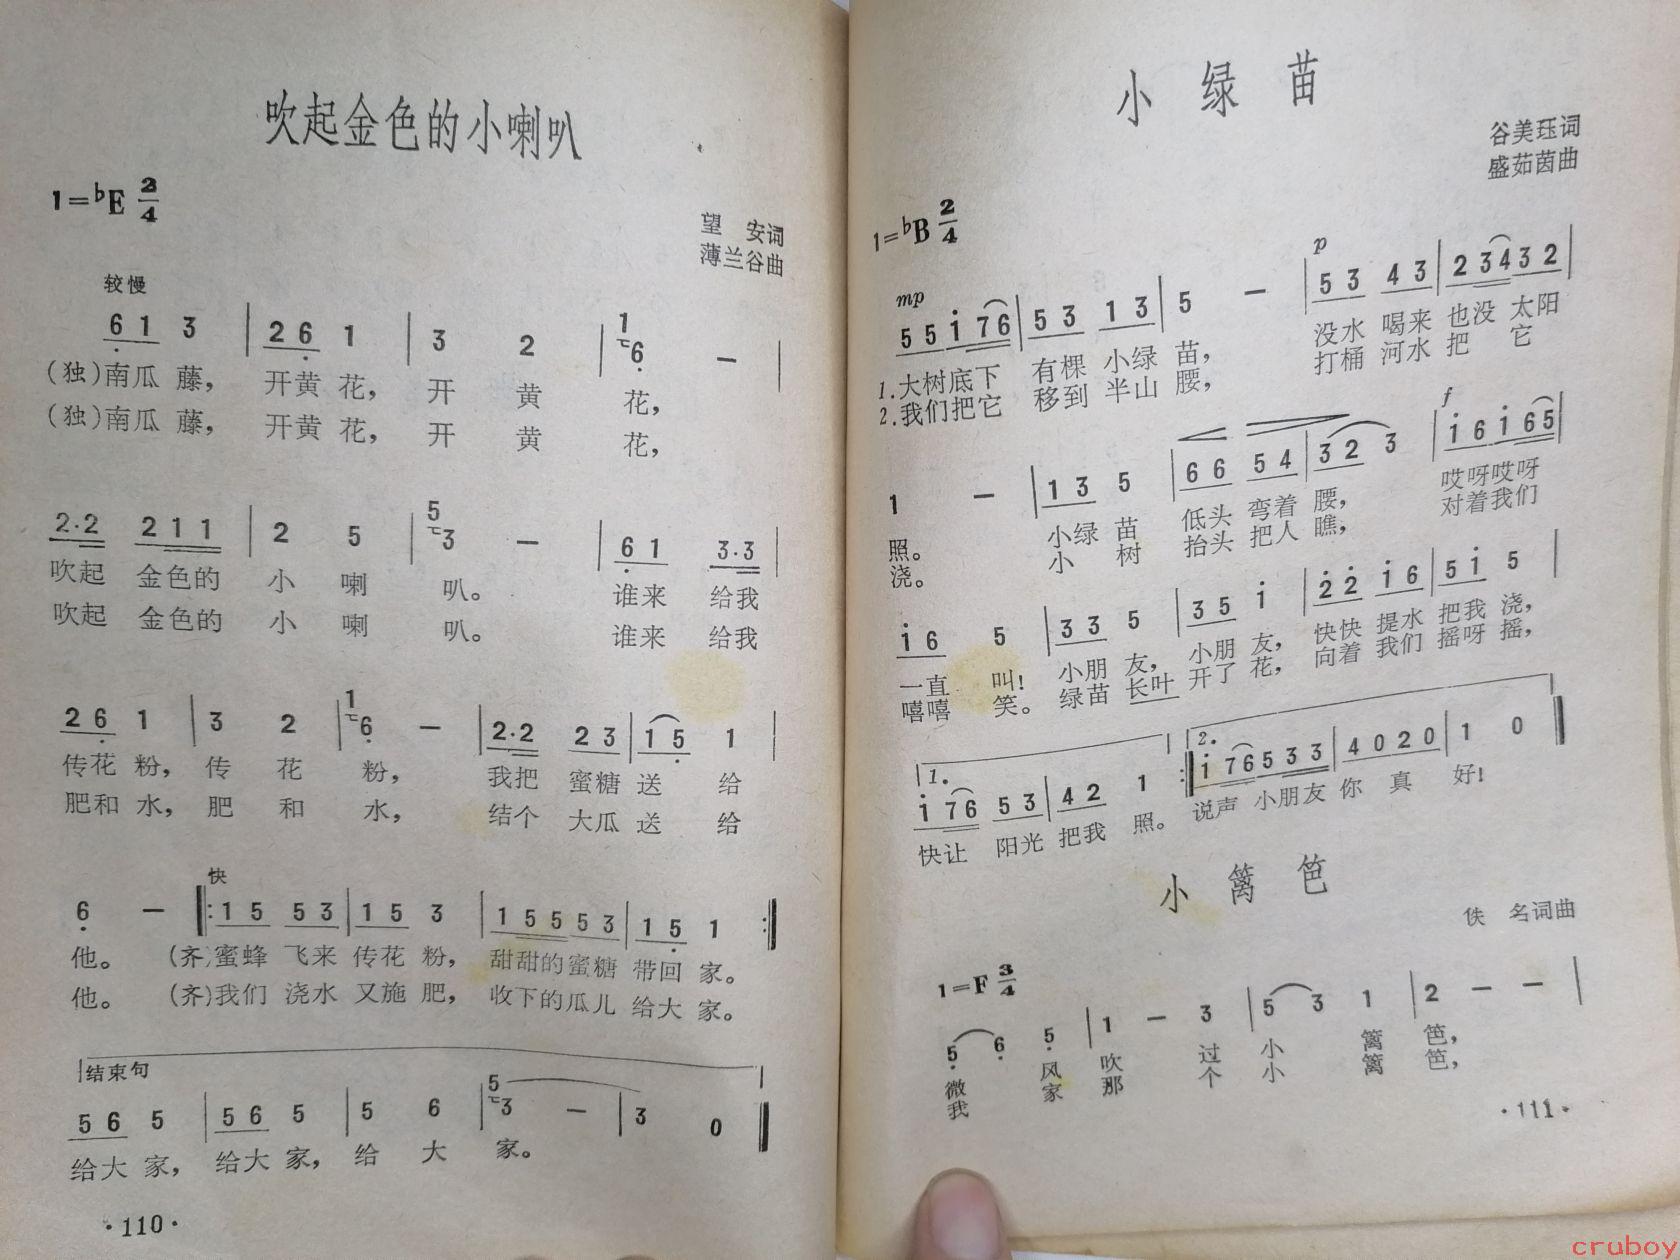 吹起金色的小喇叭
1=♭E 2/4
望 安词
薄兰谷曲
较慢
6̣ 1 3 | 2 6̣ 1 | 3 2 | 1 6̣ — |
(独)南瓜 藤, 开黄 花, 开 黄 花,
(独)南瓜 藤, 开黄 花, 开 黄 花,
2·2 2 1 1 | 2 5 | 5 3 — | 6̣ 1 3·3 |
吹起 金色的 小 喇 叭。 谁来 给我
吹起 金色的 小 喇 叭。 谁来 给我
2 6̣ 1 | 3 2 | 1 6̣ — | 2·2 2 3 | 1 5̣ 1 |
传花 粉, 传 花 粉, 我把 蜜糖 送 给
肥和 水, 肥 和 水, 结个 大瓜 送 给
快
6̣ — ‖: 1 5 5 3 | 1 5 3 | 1 5 5 5 3 | 1 5̣ 1 :‖
他。 (齐)蜜蜂 飞来 传花 粉, 甜甜的蜜糖 带回 家。
他。 (齐)我们 浇水 又施 肥, 收下的瓜儿 给大 家。
结束句
5 6 5 | 5 6 5 | 5 6 | 5 3 — | 3 0 ‖
给大 家, 给大 家, 给 大 家。
·110·
小 绿 苗
谷美珏词
盛茹茵曲
1=♭B 2/4
mp p
5 5 i 7 6 | 5 3 1 3 | 5 — | 5 3 4 3 | 2 3 4 3 2 |
1.大树底下 有棵 小绿 苗, 没水 喝来 也没 太阳
2.我们把它 移到 半山 腰, 打桶 河水 把 它
f
1 — | 1 3 5 | 6 6 5 4 | 3 2 3 | i 6 i 6 5 |
照。 小绿 苗 低头 弯着 腰, 哎呀哎呀
浇。 小 树 抬头 把人 瞧, 对着我们
i 6 5 | 3 3 5 | 3 5 i | 2̇ 2̇ i 6 | 5 i 5 |
一直 叫! 小朋 友, 小朋 友, 快快 提水 把我 浇,
嘻嘻 笑。 绿苗 长叶 开了 花, 向着 我们 摇呀 摇,
1. 2.
i 7 6 5 3 | 4 2 1 :‖ i 7 6 5 3 3 | 4 0 2 0 | 1 0 ‖
快让 阳光 把我 照。 说声 小朋友 你 真 好!
小 篱 笆
佚 名词曲
1=F 3/4
5̣ 6̣ 5̣ | 1 — 3 | 5 3 1 | 2 — — |
微 风 吹 过 小 篱 笆,
我 家 那 个 小 篱 笆,
·111·
cruboy